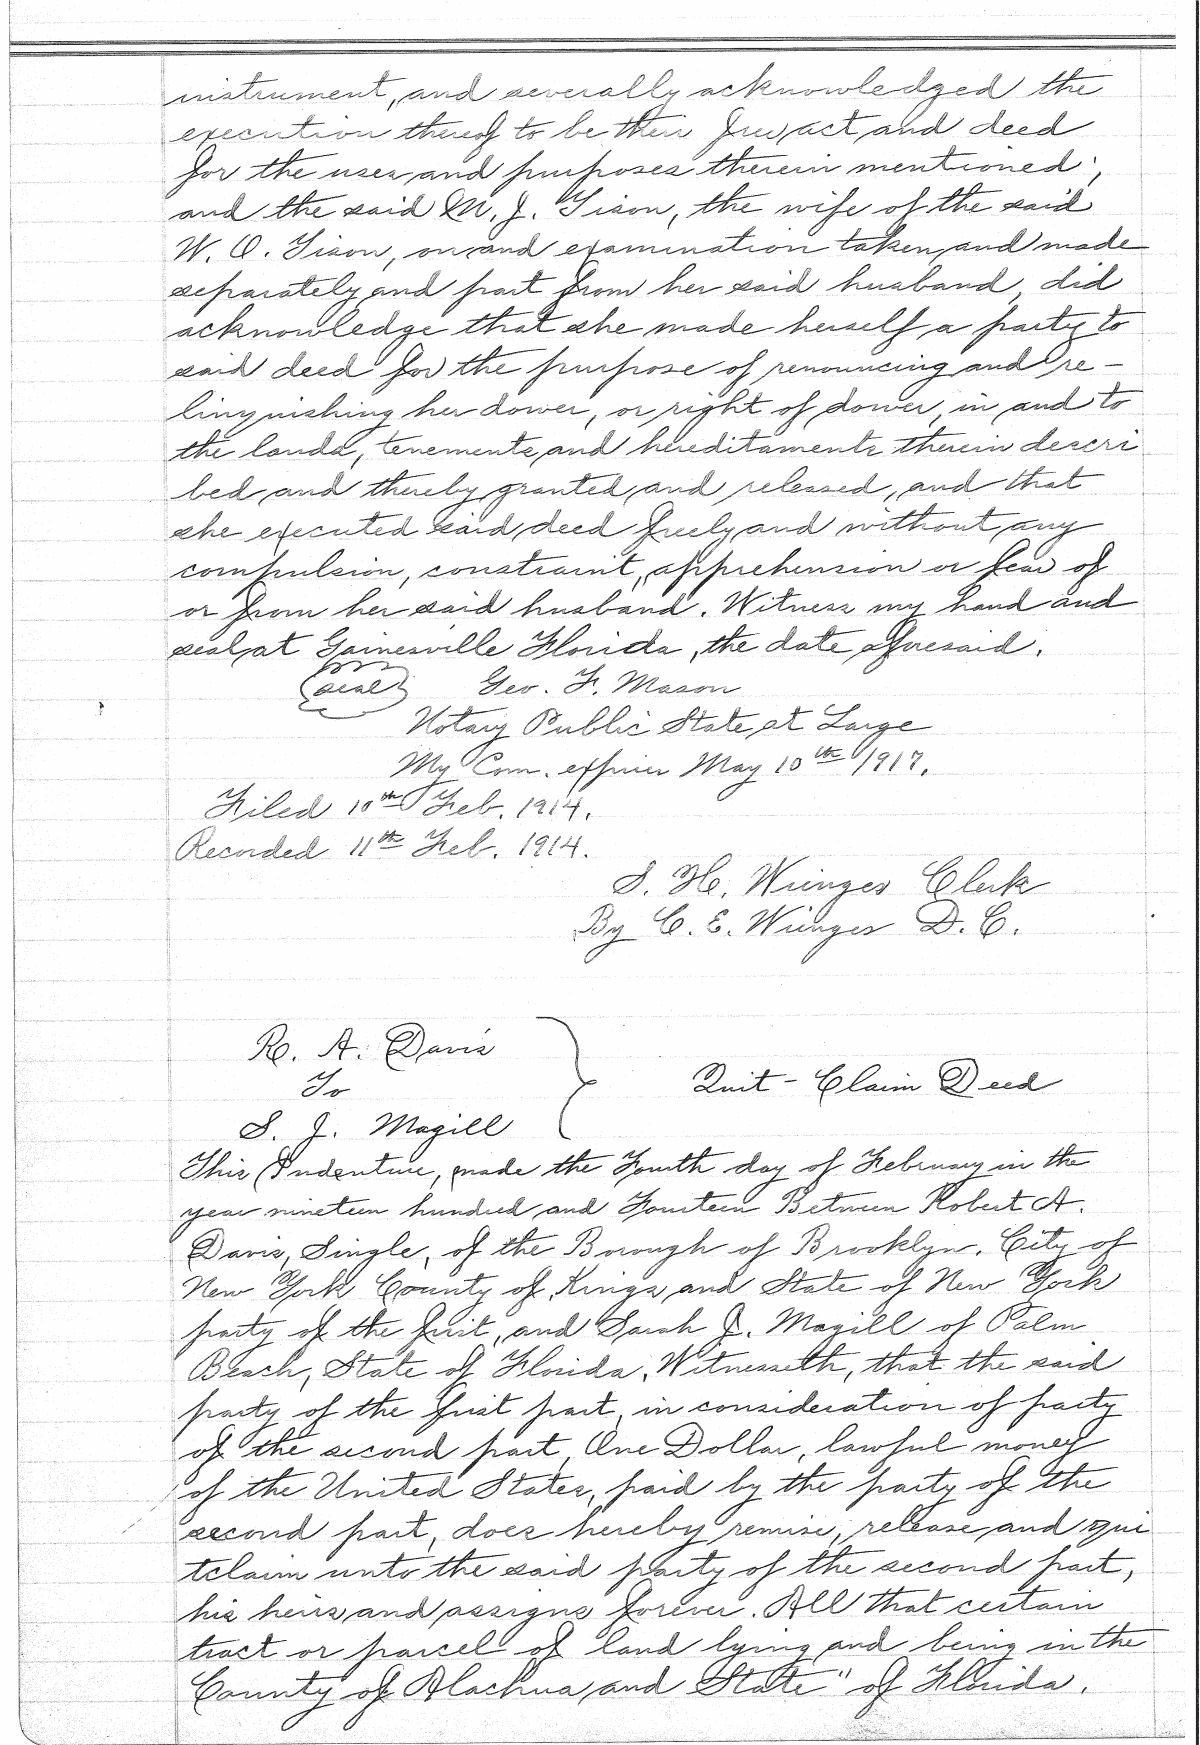 instrument, and severally acknowledged the
execution thereof to be their free act and deed
for the uses and purposes therein mentioned;
and the said M. J. Tison, the wife of the said
W. O. Tison, on and examination taken and made
separately and part from her said husband, did
acknowledge that she made herself a party to
said deed for the purpose of renouncing and re-
linquishing her dower, or right of dower, in and to
the lands, tenements and hereditaments therein descri
bed and thereby granted and released, and that
she executed said deed freely and without any
compulsion, constraint, apprehension or fear of
or from her said husband. Witness my hand and
seal at Gainesville Florida, the date aforesaid.
(seal) Geo. F. Mason
Notary Public State at Large
My Com. expires May 10th 1917.
Filed 10th Feb. 1914.
Recorded 11th Feb. 1914.
S. H. Wienges Clerk
By C. E. Wienges D. C.
R. A. Davis
To
Quit-Claim Deed
S. J. Magill
This Indenture, made the Fourth day of February in the
year nineteen hundred and Fourteen Between Robert A.
Davis, Single, of the Borough of Brooklyn, City of
New York County of Kings and State of New York
party of the first, and Sarah J. Magill of Palm
Beach, State of Florida, Witnesseth, that the said
party of the first part, in consideration of party
of the second part, One Dollar, lawful money
of the United States, paid by the party of the
second part, does hereby remise, release and qui
tclaim unto the said party of the second part,
his heirs and assigns forever. All that certain
tract or parcel of land lying and being in the
County of Alachua and State" of Florida.